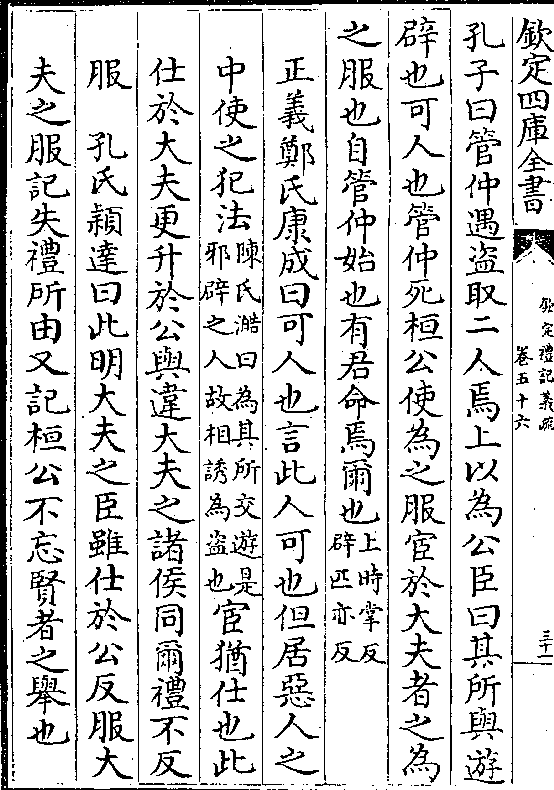 欽定四庫全書
欽定禮記義疏
卷五十六
三十一
孔子曰管仲遇盜取二人焉上以為公臣曰其所與遊
辟也可人也管仲死桓公使為之服宦於大夫者之為
之服也自管仲始也有君命焉爾也上時掌反
辟匹亦反
正義鄭氏康成曰可人也言此人可也但居惡人之
中使之犯法陳氏澔曰為其所交遊是
邪辟之人故相誘為盜也宦猶仕也此
仕於大夫更升於公與違大夫之諸侯同爾禮不反
服　孔氏穎達曰此明大夫之臣雖仕於公反服大
夫之服記失禮所由又記桓公不忘賢者之舉也